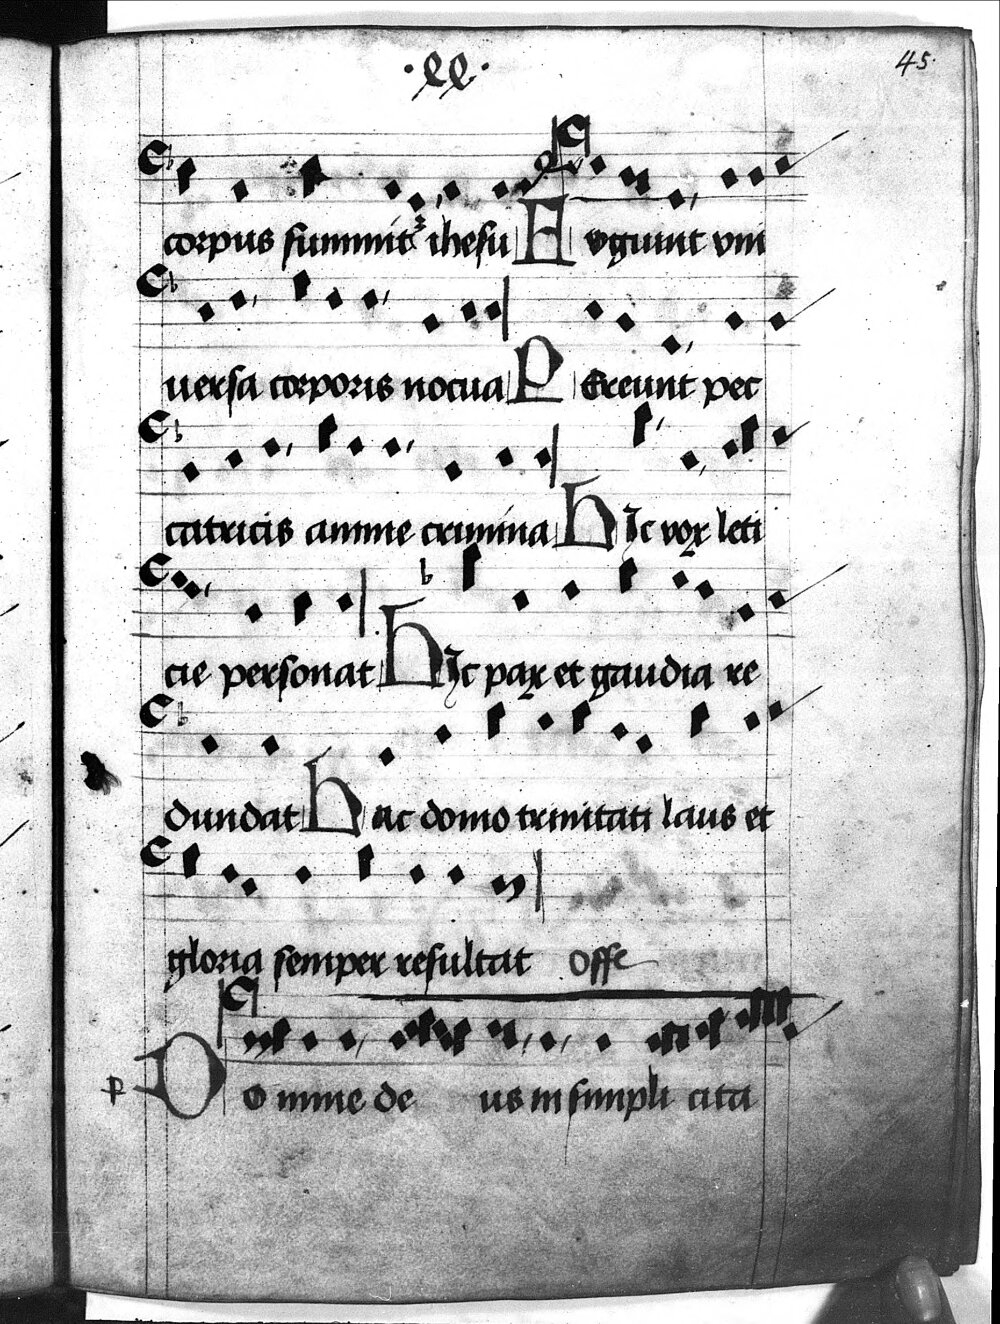 ·ll·
45·
corpus sumit᷑ ihesu Fugiunt vni
uersa corporis nocua Pereunt pec
catricis anime crimina Hic vox leti
cie personat Hic pax et gaudia re
dundat Hac domo trinitati laus et
gloria semper resultat Offe
Domine deus in simplicita